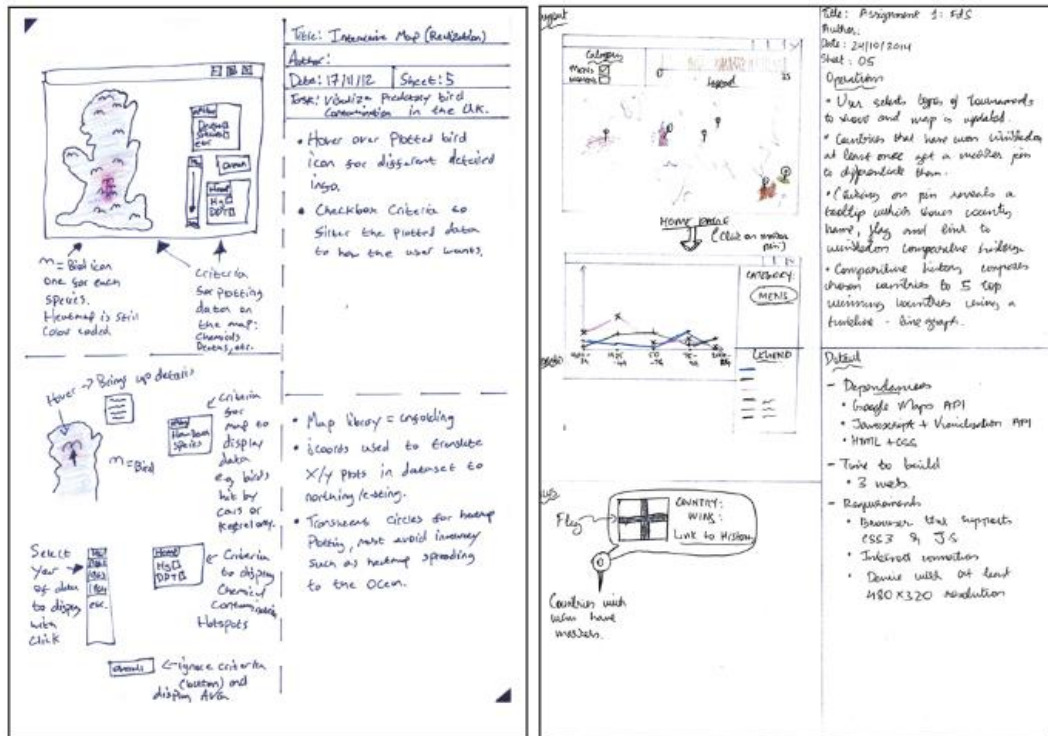 Title: Interactive Map (Realization)
Author:
Date: 17/11/12
Sheet: 5
Task: Visualize Predatory bird
Contamination in the UK.
• Hover over Plotted bird
icon for different detailed
info.
• Checkbox Criteria to
filter the plotted data
to how the user wants.
= Bird icon
one for each
species.
Heatmap is still
Color coded
Criteria
for plotting
data on
the map:
Chemicals
Deaths, etc.
Hover → Bring up details
= Bird
Species
Criteria
for
map to
display
data
e.g. birds
hit by
cars or
kestrel only.
Select
Year
of data
to display
with
Click
etc.
Hg
DDT
Criteria
to display
Chemical
Contamination
Hotspots
ignore criteria
(button) and
display AVG
• Map library = unfolding
• icoords used to translate
X/Y plots in dataset to
northing/easting.
• Translucent circles for heatmap
Plotting, must avoid
such as heatmap spreading
to the Ocean.
Layout
Category
MENS
WOMENS
Legend
0
25
HOME PAGE
(Click on marker
pin)
CATEGORY:
MENS
LEGEND
Flag
COUNTRY:
WINS:
Link to History
Countries with
wins have
markers.
Title: Assignment 1: FdS
Author:
Date: 24/10/2014
Sheet: 05
Operations
• User selects types of tournaments
to show and map is updated.
• Countries that have won Wimbledon
at least once get a marker pin
to differentiate them.
• Clicking on pin reveals a
tooltip which shows country
name, flag and link to
Wimbledon comparative history.
• Comparitive history compares
chosen countries to 5 top
winning countries using a
timeline - line graph.
Detail
- Dependancies
• Google Maps API
• Javascript + Visualisation API
• HTML + CSS
- Time to build
• 3 weeks
- Requirements
• Browser that supports
CSS3 & JS
• Internet connection
• Device with at least
480x320 resolution